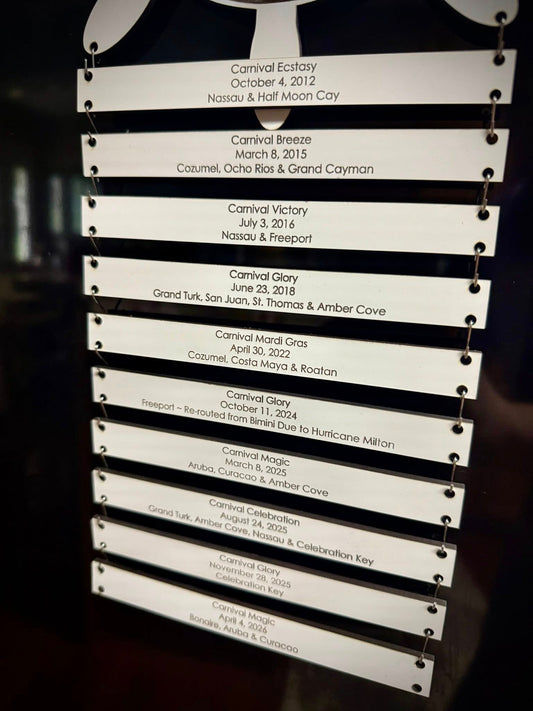 Carnival Ecstasy
October 4, 2012
Nassau & Half Moon Cay
Carnival Breeze
March 8, 2015
Cozumel, Ocho Rios & Grand Cayman
Carnival Victory
July 3, 2016
Nassau & Freeport
Carnival Glory
June 23, 2018
Grand Turk, San Juan, St. Thomas & Amber Cove
Carnival Mardi Gras
April 30, 2022
Cozumel, Costa Maya & Roatan
Carnival Glory
October 11, 2024
Freeport ~ Re-routed from Bimini Due to Hurricane Milton
Carnival Magic
March 8, 2025
Aruba, Curacao & Amber Cove
Carnival Celebration
August 24, 2025
Grand Turk, Amber Cove, Nassau & Celebration Key
Carnival Glory
November 28, 2025
Celebration Key
Carnival Magic
April 4, 2026
Bonaire, Aruba & Curacao